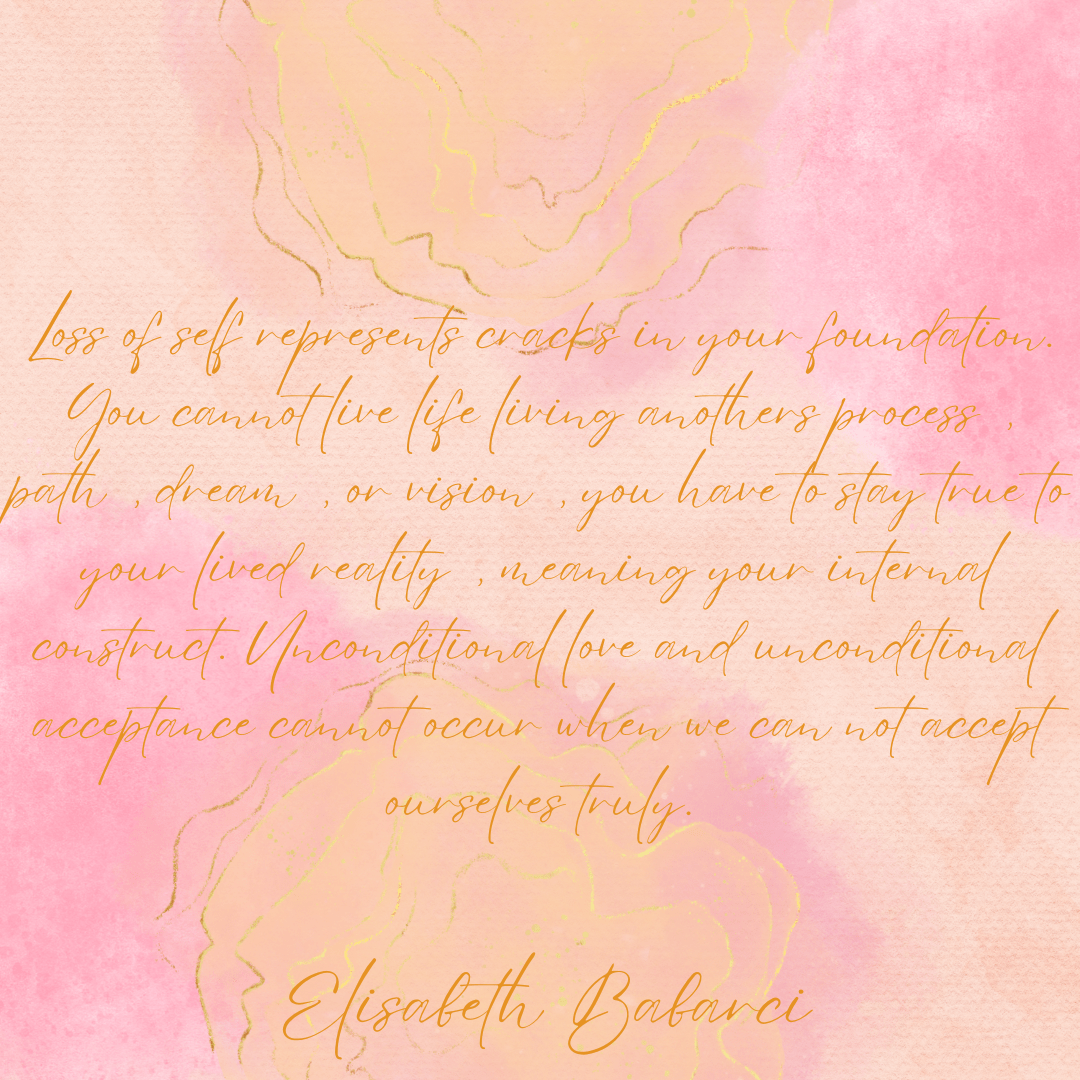 Loss of self represents cracks in your foundation.
You cannot live life living anothers process ,
path , dream , or vision , you have to stay true to
your lived reality , meaning your internal
construct. Unconditional love and unconditional
acceptance cannot occur when we can not accept
ourselves truly.
Elisabeth Babarci